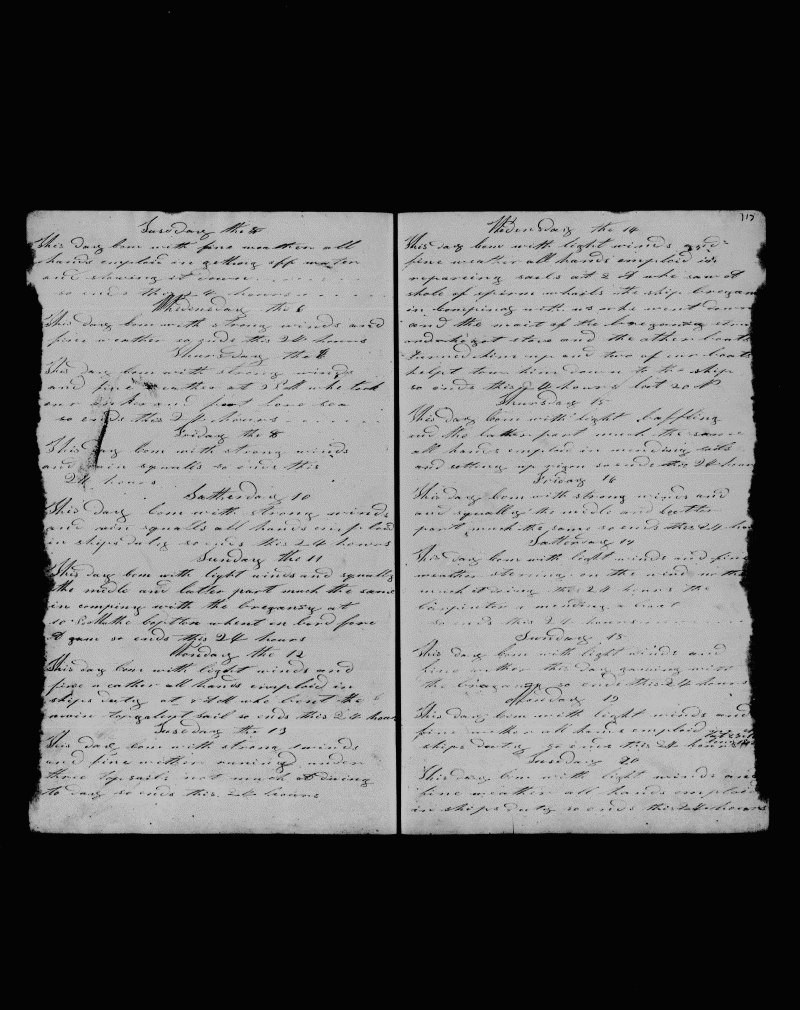 Tusoday the
This day bom with fine weather all
hands emplaid in getting off water
and stowing it down
so ends this 24 hours
Whedensday the
This day bom with strong winds and
fine weather so ends this 24 hours
Thursday the 8
This day bom with strong winds
and fine weather at whe took
our and
so ends this 24 hours
Friday the
This day bom with strong winds
and rain squalls so ends this
24 hours
Satherday 10
This day bom with strong winds
and rain squalls all hands emplaid
in ships duty so ends this 24 hours
Sunday the 11
This day bom with light winds and squally
the midle and latter part much the same
in compiny with the bregansy at
the capttin whent on bord fore
a gam so ends this 24 hours
Monday the 12
This day bom with light winds and
fine weather all hands emplaid in
ships duty at whe bent the
main topgalent sail so ends this 24 hours
Tusoday the 13
This day bom with strong winds
and fine wether runing under
three topsails not much doing
to day so ends this 24 hours
117
Whdensday the 14
This day bom with light winds and
fine weather all hands emplaid in
reparring sails at 2 whe saw a
shole of sperm whails the ship bregansy
in compiny with us whe went down
and the mait of the bregansy
and got stove and the other boats
turned him up and two of our boats
helpt tow him down to the ship
so ends this 24 hours lat 20
Thursday 15
This day bom with light baffling
and the latter part much the same
all hands emplaid in mending sails
and setting up rigen so ends this 24 hours
Friday 16
This day bom with strong winds and
and squally the midle and latter
part much the same so ends this 24
Satterday 17
This day bom with light winds and fine
weather stering on the wind
much doing this 24 hours the
carpinter a mending a boat
so ends this 24 hours
Sunday 18
This day bom with light winds and
fine wether this day gaming with
the bregansy so ends this 24 hours
Monday 19
This day bom with light winds and
fine wether all hands emplaid
ships duty so ends this 24 hours
Tusday 20
This day bom with light winds and
fine weather all hands emplaid
in ships duty so ends this 24 hours